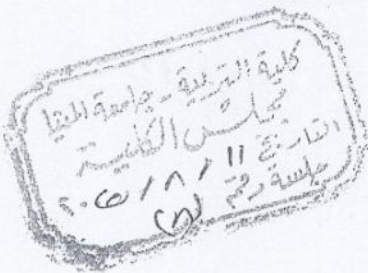 كلية التربية - جامعة المنيا
مجلس الكلية
التاريخ ١١ / ٨ /
جلسة رقم